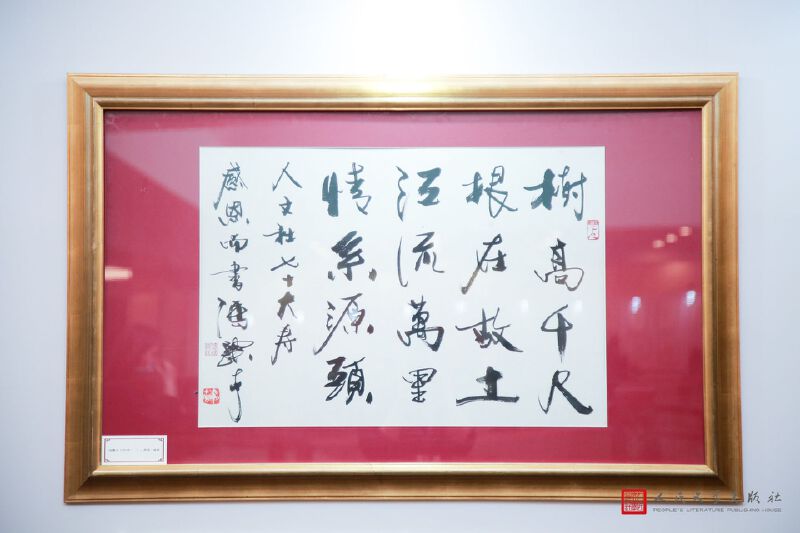 樹高千尺
根在故土
江流萬里
情系源頭
人文社七十大寿
感恩而書 馮骥才
人民文学出版社
PEOPLE'S LITERATURE PUBLISHING HOUSE